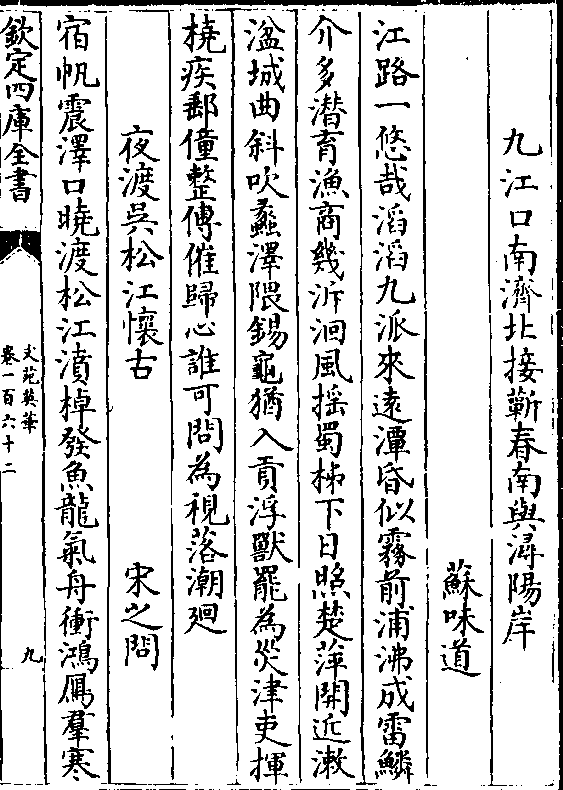 九江口南濟北接蘄春南與潯陽岸
蘇味道
江路一悠哉滔滔九派來遠潭昏似霧前浦沸成雷鱗
介多潜育漁商幾泝洄風揺蜀柹下日照楚萍開近漱
湓城曲斜吹蠡澤隈錫龜猶入貢浮獸罷為災津吏揮
橈疾郵僮整傳催歸心誰可問為視落潮廻
夜渡吳松江懷古 宋之問
宿帆震澤口曉渡松江濆棹發魚龍氣舟衝鴻鴈羣寒
欽定四庫全書
文苑英華
卷一百六十二
九